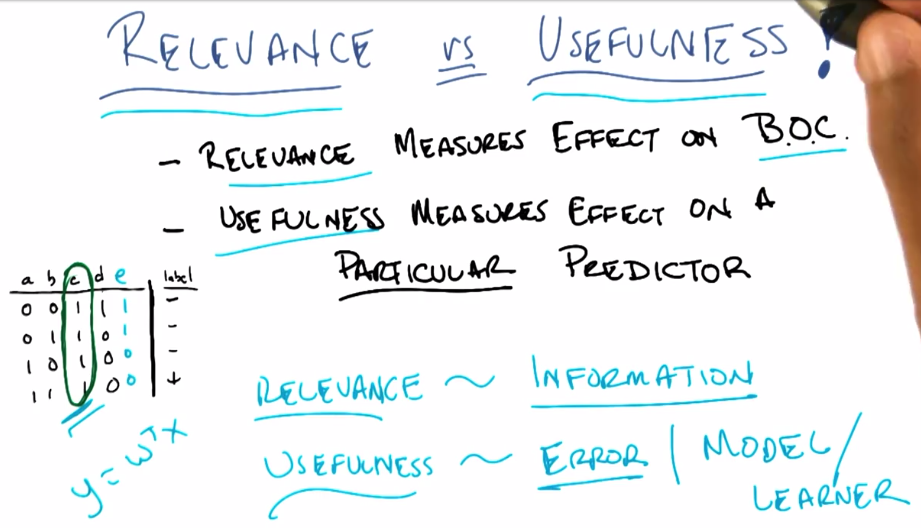 RELEVANCE vs USEFULNESS!
- RELEVANCE MEASURES EFFECT ON B.O.C.
- USEFULNESS MEASURES EFFECT ON A
PARTICULAR PREDICTOR
a b c d e label
0 0 1 1 1 -
0 1 1 0 1 -
1 0 1 0 0 -
1 1 1 0 0 +
y = wᵀx
RELEVANCE ~ INFORMATION
USEFULNESS ~ ERROR | MODEL/
LEARNER